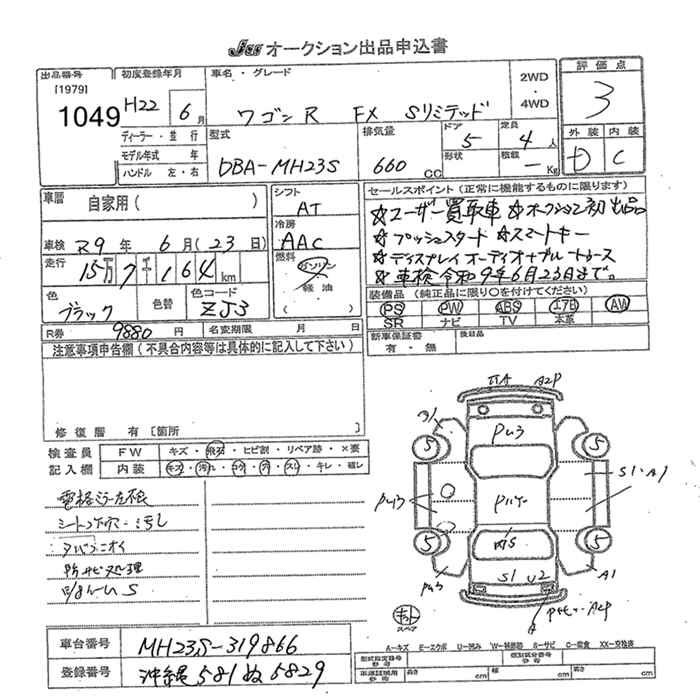 Jaa オークション出品申込書
出品番号
[1979]
1049
初度登録年月
H22 6月
ディーラー・並行
モデル年式 年
ハンドル 左・右
車名・グレード
ワゴンR FX Sリミテッド
2WD
・
4WD
型式
DBA-MH23S
排気量
660 CC
ドア 5
形状
定員 4 人
積載 - Kg
評価点
3
外装 内装
D C
車歴
自家用( )
車検 R9年 6月(23日)
走行 15万7千164 km
色 ブラック
色替
色コード ZJ3
シフト AT
冷房 AAC
燃料 ガソリン
軽油
R券 9880 円
名変期限 月 日
セールスポイント(正常に機能するものに限ります)
☆ユーザー買取車 ☆オークション初出品
☆プッシュスタート ☆スマートキー
☆ディスプレイオーディオ+ブルートゥース
☆車検令和9年6月23日まで。
装備品(純正品に限り○を付けてください)
PS PW ABS エアB AW
SR ナビ TV 本革
新車保証書 後日品
有・無
注意事項申告欄(不具合内容等は具体的に記入して下さい)
修復歴 有[箇所
検査員 FW キズ・飛石・ヒビ割・リペア跡・×要
記入欄 内装 キズ・汚れ・コゲ・穴・スレ・キレ・破レ
電格ミラー左不良
シートコゲ穴・汚れ
タバコニオイ
防サビ処理
車台番号 MH23S-319866
登録番号 沖縄 581 ぬ 5829
A2P
Pu3
5 5
S1・A1
Pu3
5 5
Pu3
S1 U2
A1
A
スペア
A-キズ E-エクボ U-凹み W-補修跡 S-サビ C-腐食 XX-交換済
cm 幅 cm 高さ cm